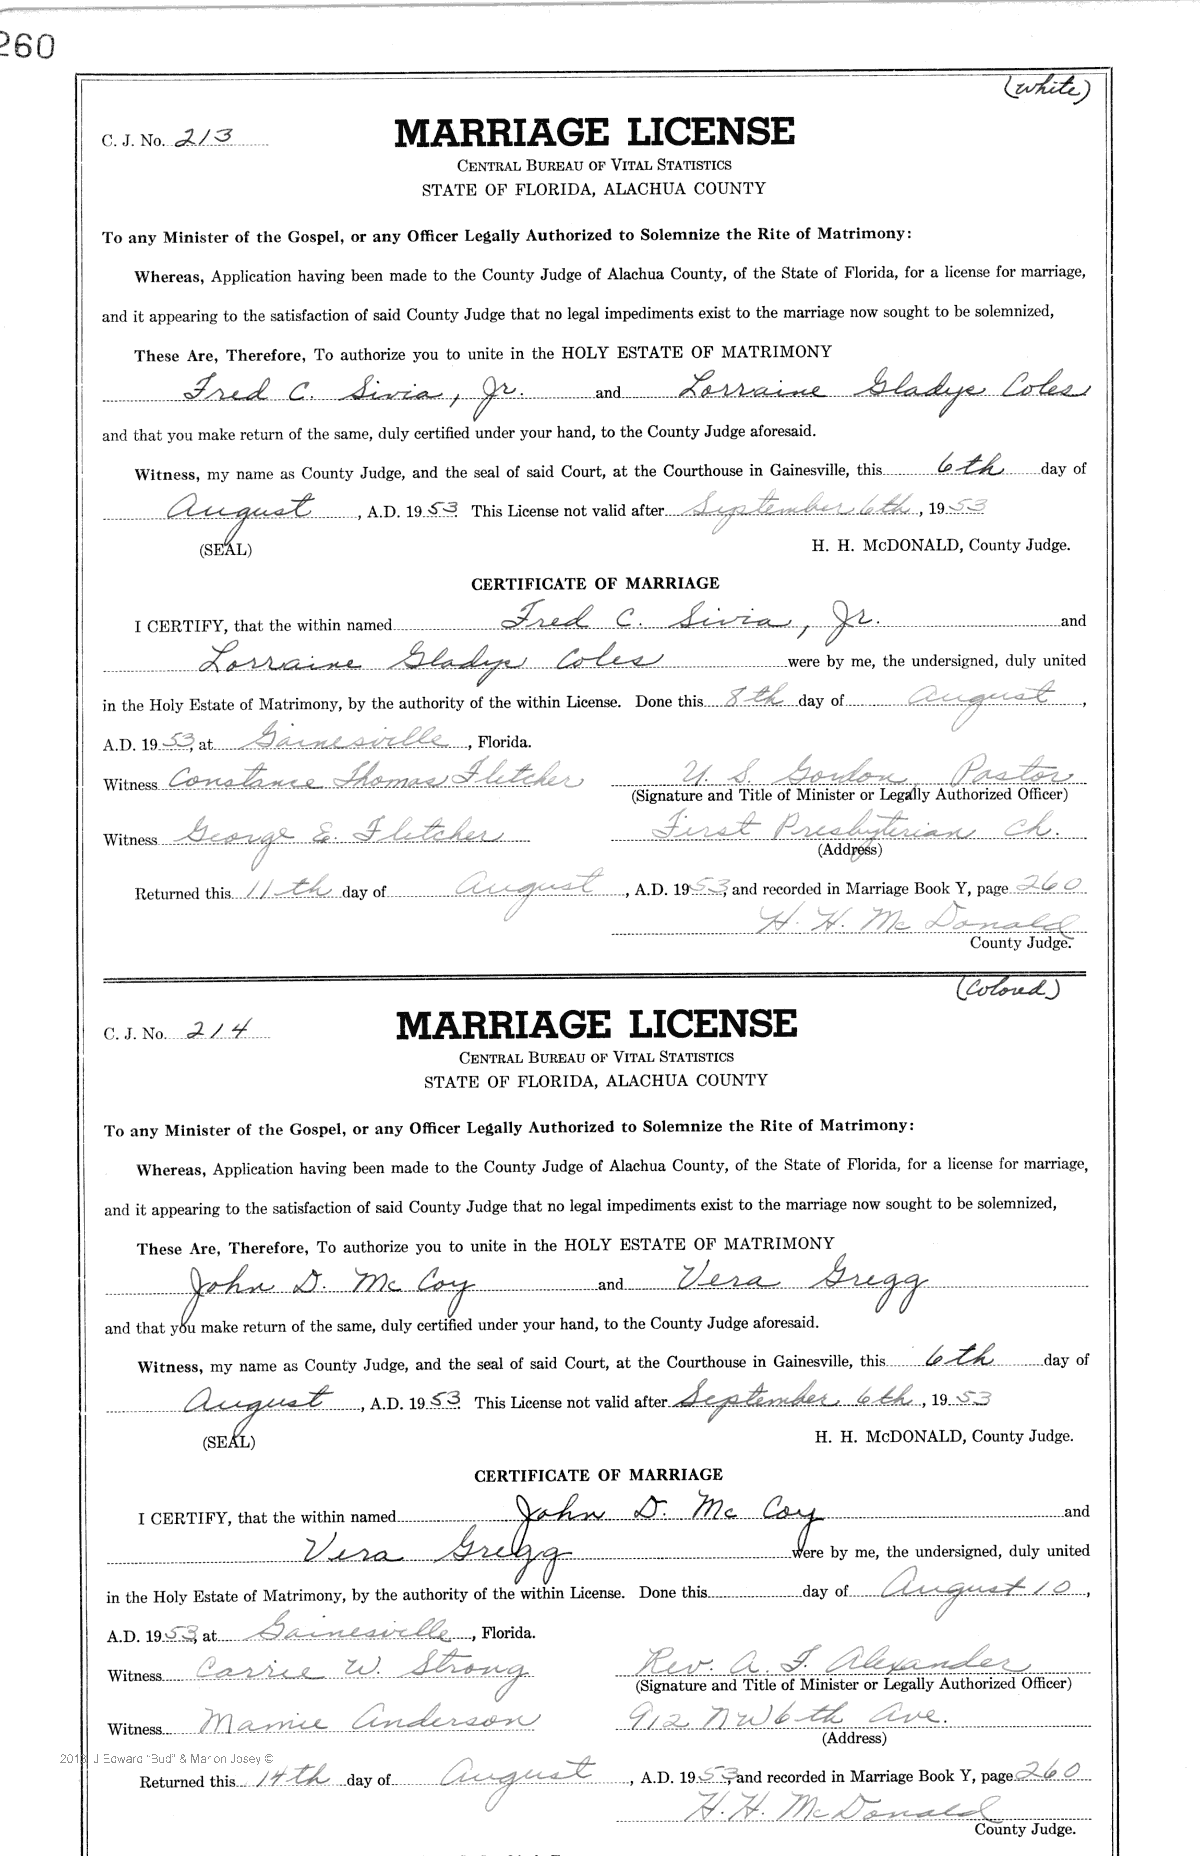 260
(White)
C. J. No. 213 MARRIAGE LICENSE
CENTRAL BUREAU OF VITAL STATISTICS
STATE OF FLORIDA, ALACHUA COUNTY
To any Minister of the Gospel, or any Officer Legally Authorized to Solemnize the Rite of Matrimony:
Whereas, Application having been made to the County Judge of Alachua County, of the State of Florida, for a license for marriage,
and it appearing to the satisfaction of said County Judge that no legal impediments exist to the marriage now sought to be solemnized,
These Are, Therefore, To authorize you to unite in the HOLY ESTATE OF MATRIMONY
Fred C. Sivia, Jr. and Lorraine Gladys Coles
and that you make return of the same, duly certified under your hand, to the County Judge aforesaid.
Witness, my name as County Judge, and the seal of said Court, at the Courthouse in Gainesville, this 6th day of
August, A.D. 1953. This License not valid after September 6th, 1953
(SEAL) H. H. McDONALD, County Judge.
CERTIFICATE OF MARRIAGE
I CERTIFY, that the within named Fred C. Sivia, Jr. and
Lorraine Gladys Coles were by me, the undersigned, duly united
in the Holy Estate of Matrimony, by the authority of the within License. Done this 8th day of August,
A.D. 1953, at Gainesville, Florida.
Witness Constance Thomas Fletcher U. S. Gordon, Pastor
(Signature and Title of Minister or Legally Authorized Officer)
Witness George E. Fletcher First Presbyterian Ch.
(Address)
Returned this 11th day of August, A.D. 1953, and recorded in Marriage Book Y, page 260
H. H. McDonald
County Judge.
(Colored)
C. J. No. 214 MARRIAGE LICENSE
CENTRAL BUREAU OF VITAL STATISTICS
STATE OF FLORIDA, ALACHUA COUNTY
To any Minister of the Gospel, or any Officer Legally Authorized to Solemnize the Rite of Matrimony:
Whereas, Application having been made to the County Judge of Alachua County, of the State of Florida, for a license for marriage,
and it appearing to the satisfaction of said County Judge that no legal impediments exist to the marriage now sought to be solemnized,
These Are, Therefore, To authorize you to unite in the HOLY ESTATE OF MATRIMONY
John D. McCoy and Vera Gregg
and that you make return of the same, duly certified under your hand, to the County Judge aforesaid.
Witness, my name as County Judge, and the seal of said Court, at the Courthouse in Gainesville, this 6th day of
August, A.D. 1953. This License not valid after September 6th, 1953
(SEAL) H. H. McDONALD, County Judge.
CERTIFICATE OF MARRIAGE
I CERTIFY, that the within named John D. McCoy and
Vera Gregg were by me, the undersigned, duly united
in the Holy Estate of Matrimony, by the authority of the within License. Done this day of August 10,
A.D. 1953, at Gainesville, Florida.
Witness Carrie W. Strong Rev. A. F. Alexander
(Signature and Title of Minister or Legally Authorized Officer)
Witness Mamie Anderson 912 NW 6th Ave.
(Address)
J Edward "Bud" & Marion Josey ©
Returned this 14th day of August, A.D. 1953, and recorded in Marriage Book Y, page 260
H. H. McDonald
County Judge.